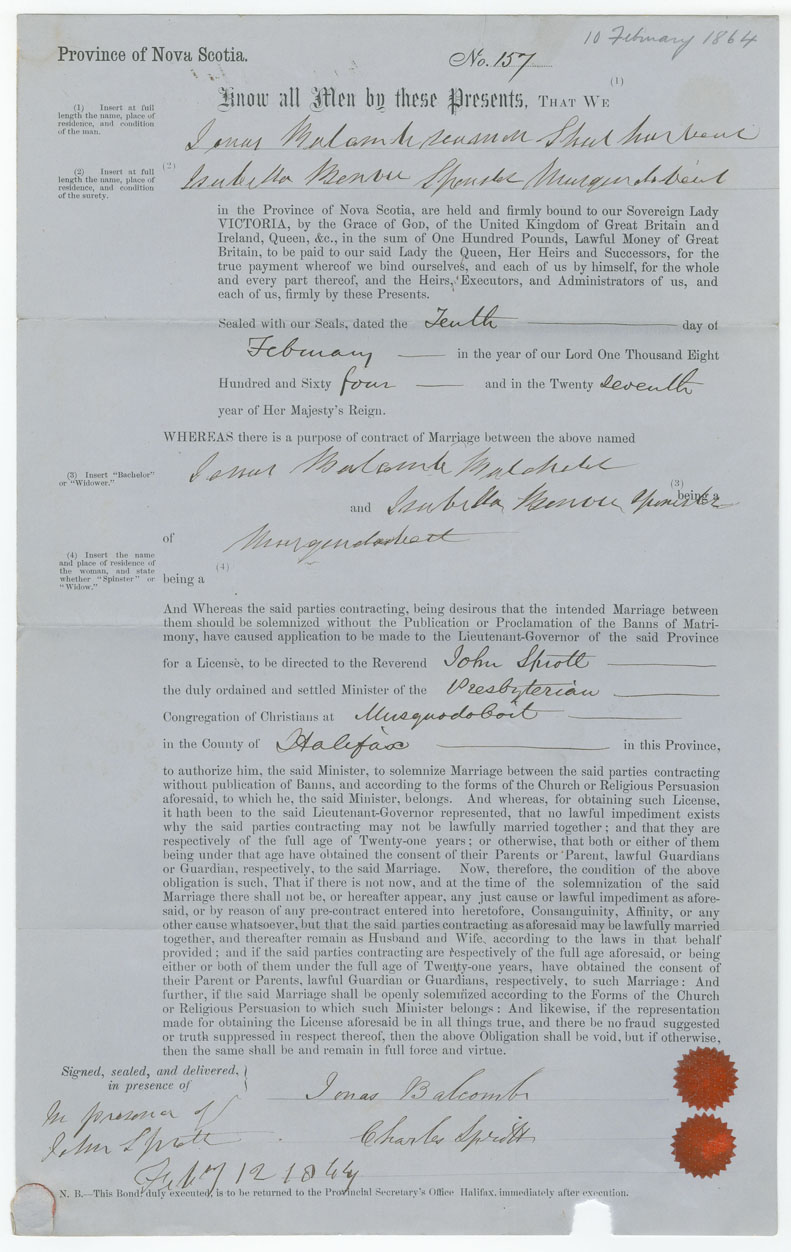 10 February 1864
Province of Nova Scotia.
No. 157
(1) Insert at full
length the name, place of
residence, and condition
of the man.
Know all Men by these Presents, THAT WE (1)
Jonas Balcomb seaman
(2) Insert at full
length the name, place of
residence, and condition
of the surety.
(2) Isabella Spinster
in the Province of Nova Scotia, are held and firmly bound to our Sovereign Lady
VICTORIA, by the Grace of GOD, of the United Kingdom of Great Britain and
Ireland, Queen, &c., in the sum of One Hundred Pounds, Lawful Money of Great
Britain, to be paid to our said Lady the Queen, Her Heirs and Successors, for the
true payment whereof we bind ourselves, and each of us by himself, for the whole
and every part thereof, and the Heirs, Executors, and Administrators of us, and
each of us, firmly by these Presents.
Sealed with our Seals, dated the Tenth day of
February in the year of our Lord One Thousand Eight
Hundred and Sixty four and in the Twenty seventh
year of Her Majesty's Reign.
WHEREAS there is a purpose of contract of Marriage between the above named
(3) Insert "Bachelor"
or "Widower."
Jonas Balcomb
(3)
being a
and Isabella Spinster
of
(4) Insert the name
and place of residence of
the woman, and state
whether "Spinster" or
"Widow."
(4)
being a
And Whereas the said parties contracting, being desirous that the intended Marriage between
them should be solemnized without the Publication or Proclamation of the Banns of Matri-
mony, have caused application to be made to the Lieutenant-Governor of the said Province
for a License, to be directed to the Reverend John Sprott
the duly ordained and settled Minister of the Presbyterian
Congregation of Christians at Musquodoboit
in the County of Halifax in this Province,
to authorize him, the said Minister, to solemnize Marriage between the said parties contracting
without publication of Banns, and according to the forms of the Church or Religious Persuasion
aforesaid, to which he, the said Minister, belongs. And whereas, for obtaining such License,
it hath been to the said Lieutenant-Governor represented, that no lawful impediment exists
why the said parties contracting may not be lawfully married together; and that they are
respectively of the full age of Twenty-one years; or otherwise, that both or either of them
being under that age have obtained the consent of their Parents or Parent, lawful Guardians
or Guardian, respectively, to the said Marriage. Now, therefore, the condition of the above
obligation is such, That if there is not now, and at the time of the solemnization of the said
Marriage there shall not be, or hereafter appear, any just cause or lawful impediment as afore-
said, or by reason of any pre-contract entered into heretofore, Consanguinity, Affinity, or any
other cause whatsoever, but that the said parties contracting as aforesaid may be lawfully married
together, and thereafter remain as Husband and Wife, according to the laws in that behalf
provided; and if the said parties contracting are respectively of the full age aforesaid, or being
either or both of them under the full age of Twenty-one years, have obtained the consent of
their Parent or Parents, lawful Guardian or Guardians, respectively, to such Marriage: And
further, if the said Marriage shall be openly solemnized according to the Forms of the Church
or Religious Persuasion to which such Minister belongs: And likewise, if the representation
made for obtaining the License aforesaid be in all things true, and there be no fraud suggested
or truth suppressed in respect thereof, then the above Obligation shall be void, but if otherwise,
then the same shall be and remain in full force and virtue.
Signed, sealed, and delivered,
in presence of
Jonas Balcomb
In presence of
Charles Sprott
John Sprott
Feby 12 1864
N. B.—This Bond, duly executed, is to be returned to the Provincial Secretary's Office Halifax, immediately after execution.